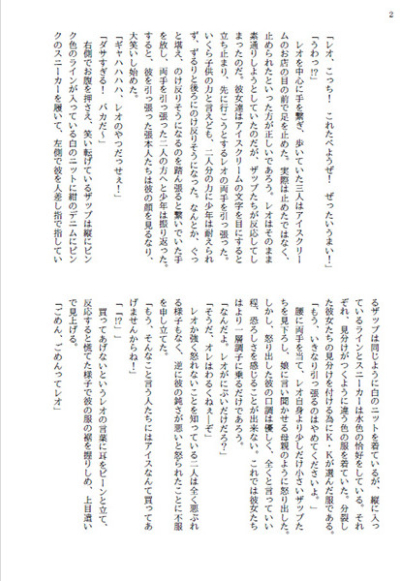 2
「レオ、こっち！　これたべようぜ！　ぜったいうまい！」
「うわっ!?」
レオを中心に手を繋ぎ、歩いていた三人はアイスクリー
ムのお店の目の前で足を止めた。実際は止めたではなく、
止められたといった方が正しいであろう。レオはそのまま
素通りしようとしていたのだが、ザップたちが反応してし
まったのだ。彼女達はアイスクリームの文字を目にすると
立ち止まり、先に行こうとするレオの両手を引っ張った。
いくら子供の力と言えども、二人分の力に少年は耐えられ
ず、ずるりと後ろにのけ反りそうになった。なんとか、ぐっ
と堪え、のけ反りそうになるのを踏ん張ると繋いでいた手
を放し、両手を引っ張った二人の方へと少年は振り返った。
すると、彼を引っ張った張本人たちは彼の顔を見るなり、
大笑いし始めた。
「ギャハハハハ、レオのやつだっせぇ！」
「ダサすぎる！　バカだ～」
右側でお腹を押さえ、笑い転げているザップは縦にピン
ク色のラインが入っている白のニットに紺のデニムにピン
クのスニーカーを履いて、左側で彼を人差し指で指してい
るザップは同じように白のニットを着ているが、縦に入っ
ているラインとスニーカーは水色の恰好をしている。それ
ぞれ、見分けがつくように違う色の服を着ていた。分裂し
た彼女たちの見分けを付ける為にK・Kが選んだ服である。
「もう、いきなり引っ張るのはやめてくださいよ。」
腰に両手を当て、レオ自身より少しだけ小さいザップた
ちを見下ろし、娘に言い聞かせる母親のように怒り出した。
しかし、怒り出した彼の口調は優しく、全くと言っていい
程、恐ろしさを感じることが出来ない。これでは彼女たち
はより一層調子に乗るだけであろう。
「なんだよ。レオがにぶいだけだろ？」
「そうだ、オレはわるくねぇーぞ」
レオが強く怒れないことを知っている二人は全く悪ぶれ
る様子もなく、逆に彼の鈍さが悪いと怒られたことに不服
を申し立てた。
「もう、そんなこと言う人たちにはアイスなんて買ってあ
げませんからね！」
「「!?」」
買ってあげないというレオの言葉に耳をピーンと立て、
反応すると慌てた様子で彼の服の裾を握りしめ、上目遣い
で見上げる。
「ごめん、ごめんってレオ」